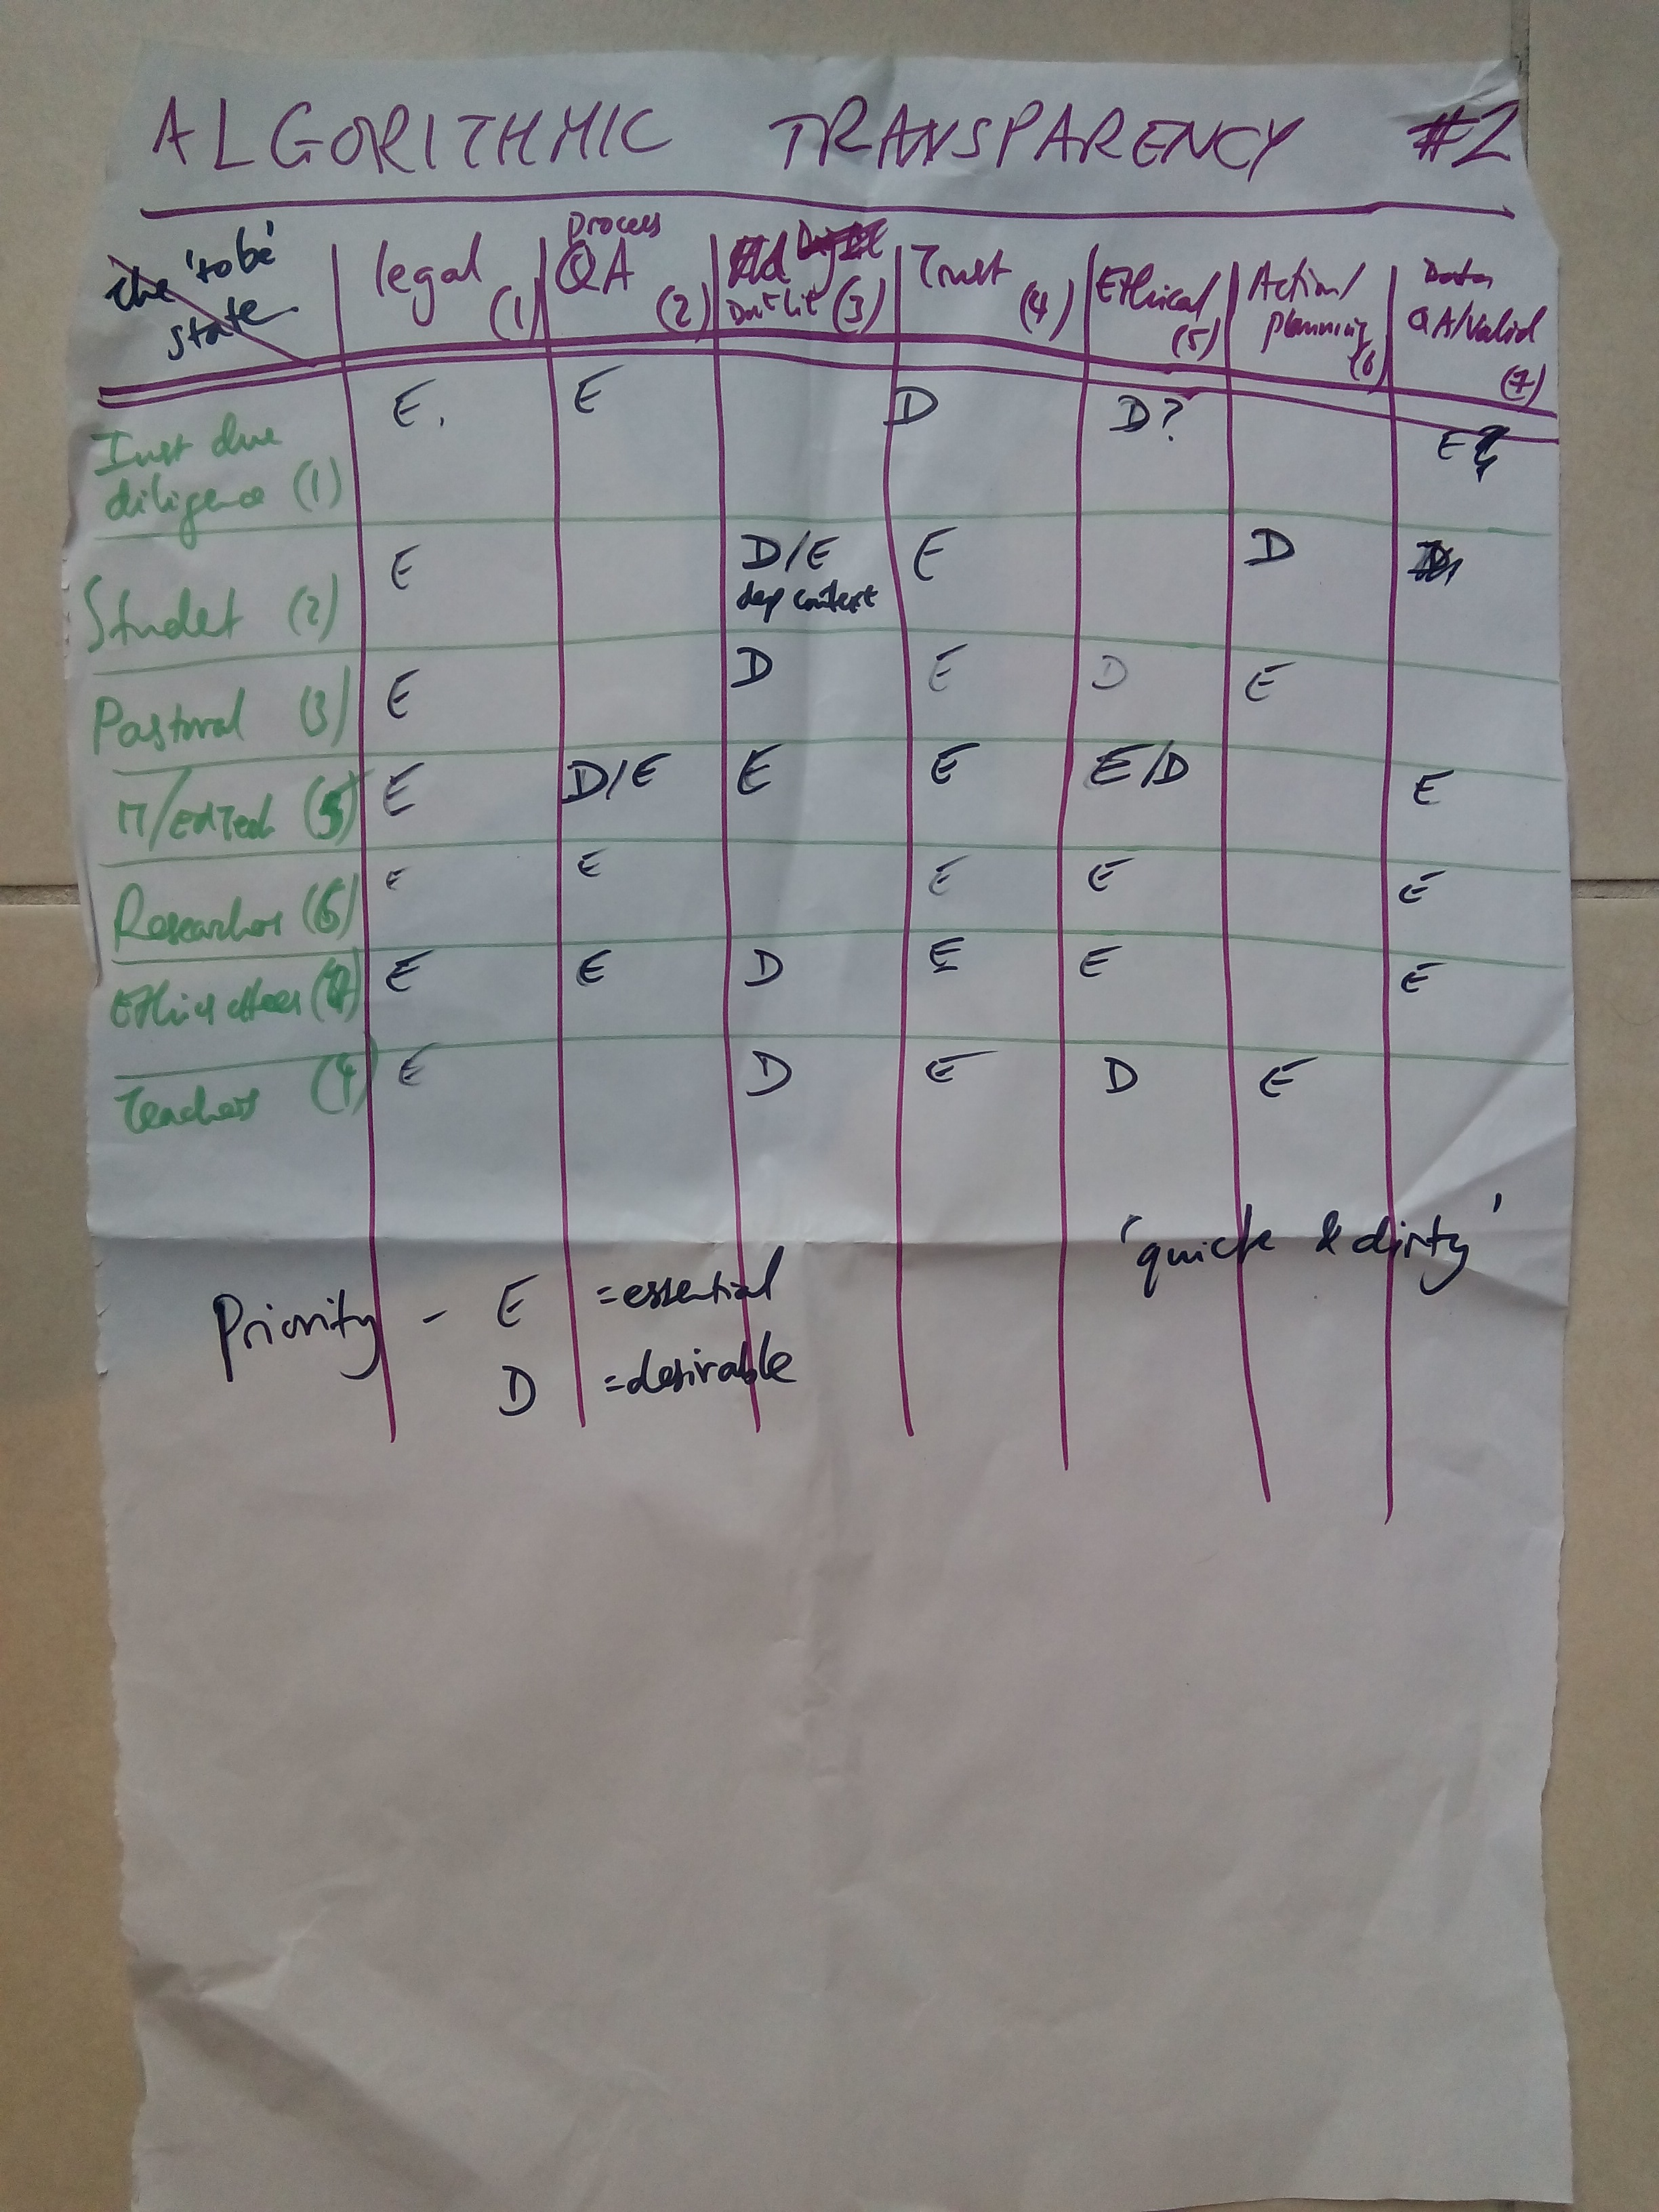 ALGORITHMIC TRANSPARENCY #2
the 'to be' state
legal (1)
process QA (2)
Dat Lit (3)
Trust (4)
Ethical (5)
Action/ planning (6)
Data QA/Valid (7)
Inst due diligence (1) E. E D D? E
Studet (2) E D/E dep context E D
Pastoral (3) E D E D E
IT/EdTech (5) E D/E E E E/D E
Researcher (6) E E E E E
Ethics cttees E E D E E E
Teachers (4) E D E D E
'quick & dirty'
Priority - E =essential
D =desirable